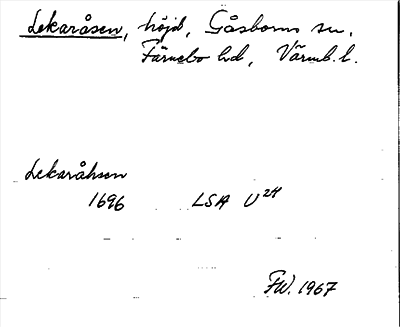 Lekaråsen, höjd, Gåsborns sn,
Färnebo hd, Värml. l.
Lekaråhsen
1696 LSA U24
FW. 1967